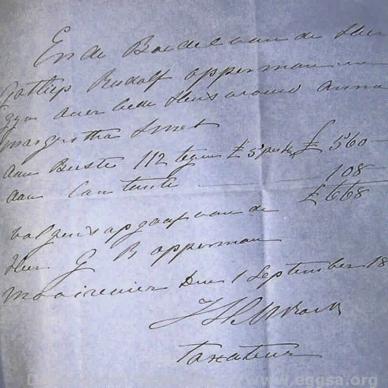 En de Boedel van de Heer
Gotliep Rudolf opperman
zyn over lede Huisvrouw anna
margretha Smet
aan Beeste 112 tegen £5 pr stuk £560
aan Contante 108
£668
volgens opgaaf van de
Heer G R opperman
Mooirivier Den 1 September 18
Taxateur
www.eggsa.org